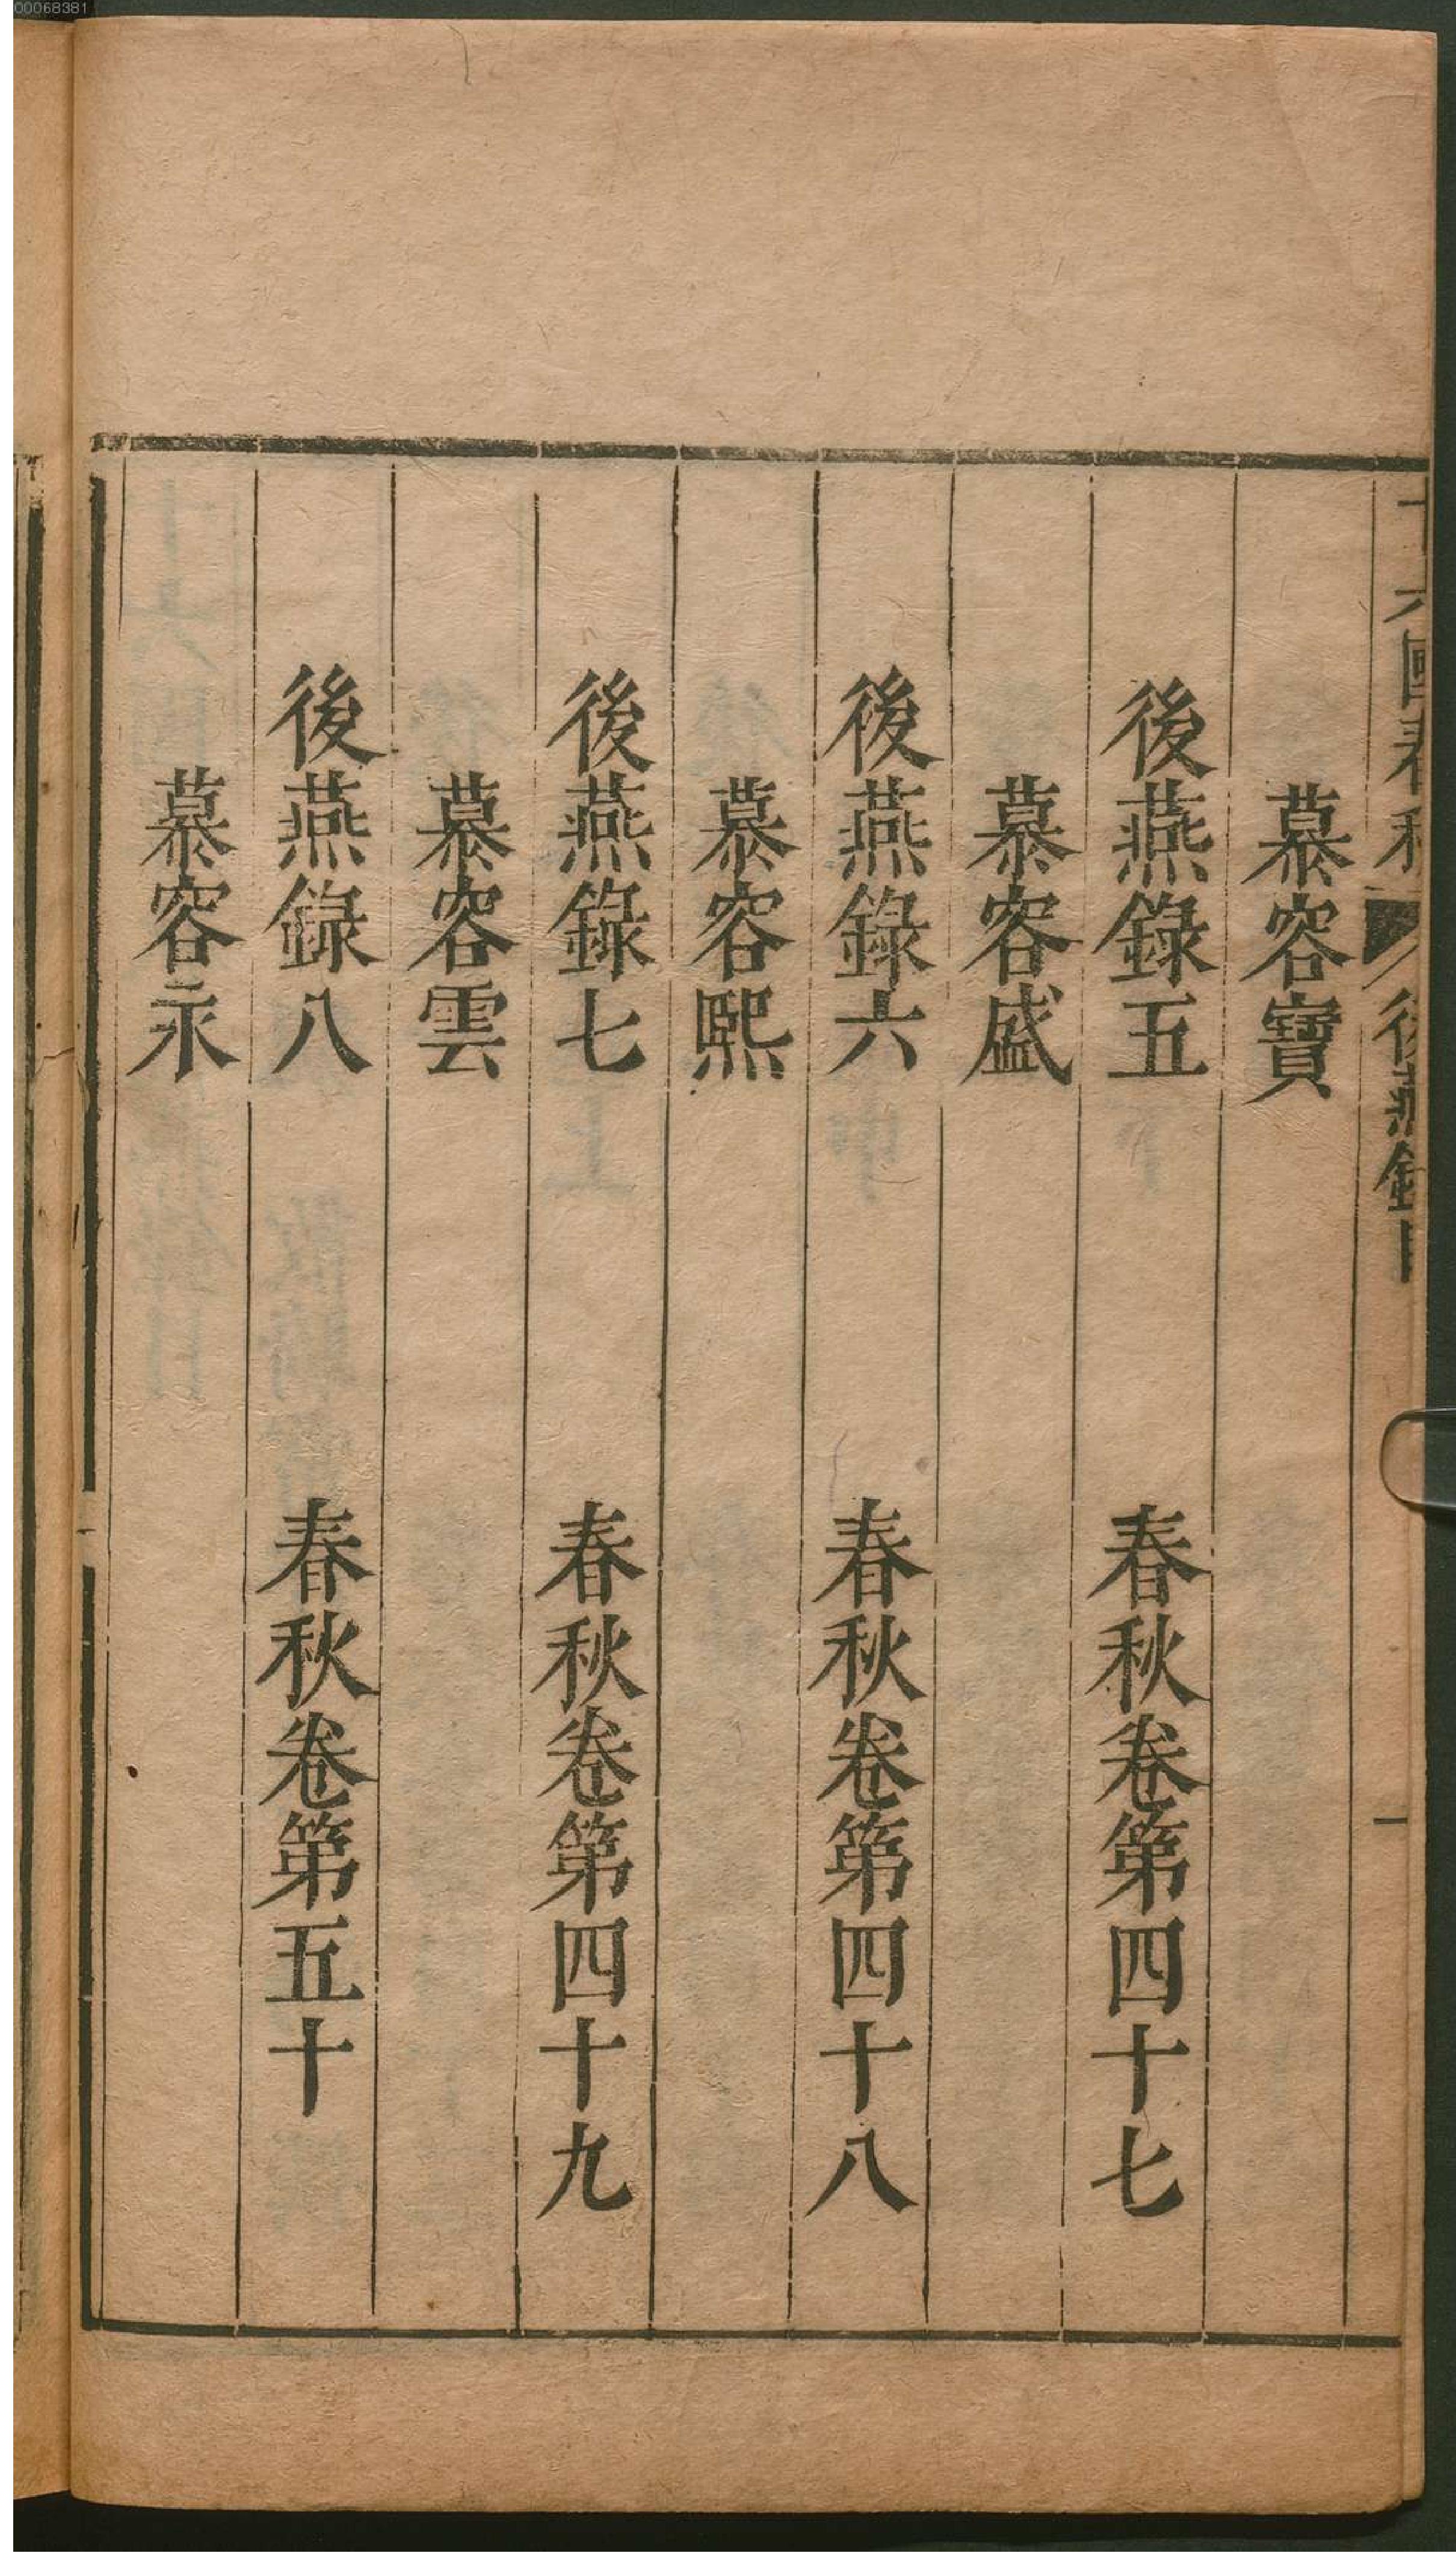 00068381
國春秋 後燕錄目 一
慕容寶
後燕錄五 春秋卷第四十七
慕容盛
後燕錄六 春秋卷第四十八
慕容熙
後燕錄七 春秋卷第四十九
慕容雲
後燕錄八 春秋卷第五十
慕容永